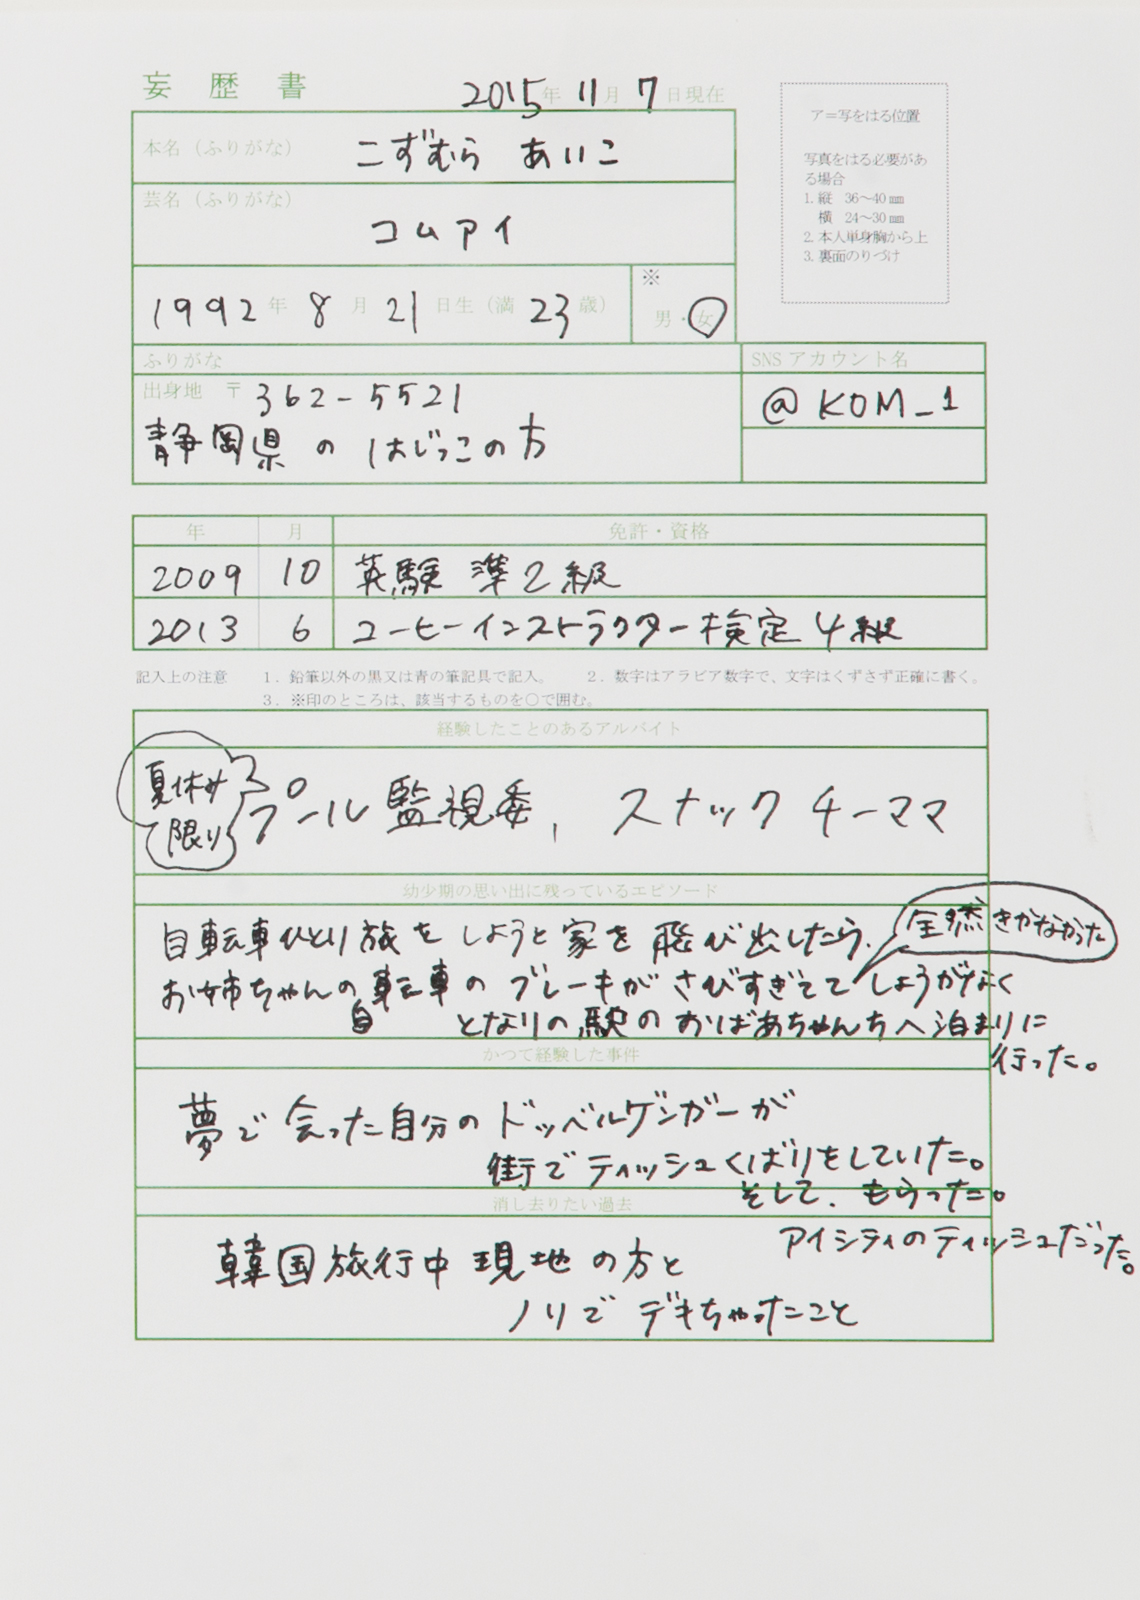 妄歴書
2015年 11月 7日現在
ア=写をはる位置
写真をはる必要があ
る場合
1. 縦 36～40㎜
横 24～30㎜
2. 本人単身胸から上
3. 裏面のりづけ
本名（ふりがな）
こずむら あいこ
芸名（ふりがな）
コムアイ
1992年 8月 21日生（満 23歳）
※
男・女
ふりがな
SNS アカウント名
出身地 〒362-5521
@KOM_1
静岡県のはじっこの方
年 月 免許・資格
2009 10 英験 準2級
2013 6 コーヒーインストラクター検定4級
記入上の注意 1．鉛筆以外の黒又は青の筆記具で記入。 2．数字はアラビア数字で、文字はくずさず正確に書く。
3．※印のところは、該当するものを〇で囲む。
経験したことのあるアルバイト
夏休み
限り
プール監視委, スナック チーママ
幼少期の思い出に残っているエピソード
自転車ひとり旅をしようと家を飛び出したら、
全然きかなかった
お姉ちゃんの自転車のブレーキがさびすぎてて しょうがなく
となりの駅のおばあちゃんちへ泊まりに
行った。
かつて経験した事件
夢で会った自分のドッベルゲンガーが
街でティッシュくばりをしていた。
そして、もらった。
消し去りたい過去
アイシティのティッシュだった。
韓国旅行中現地の方と
ノリでデキちゃったこと